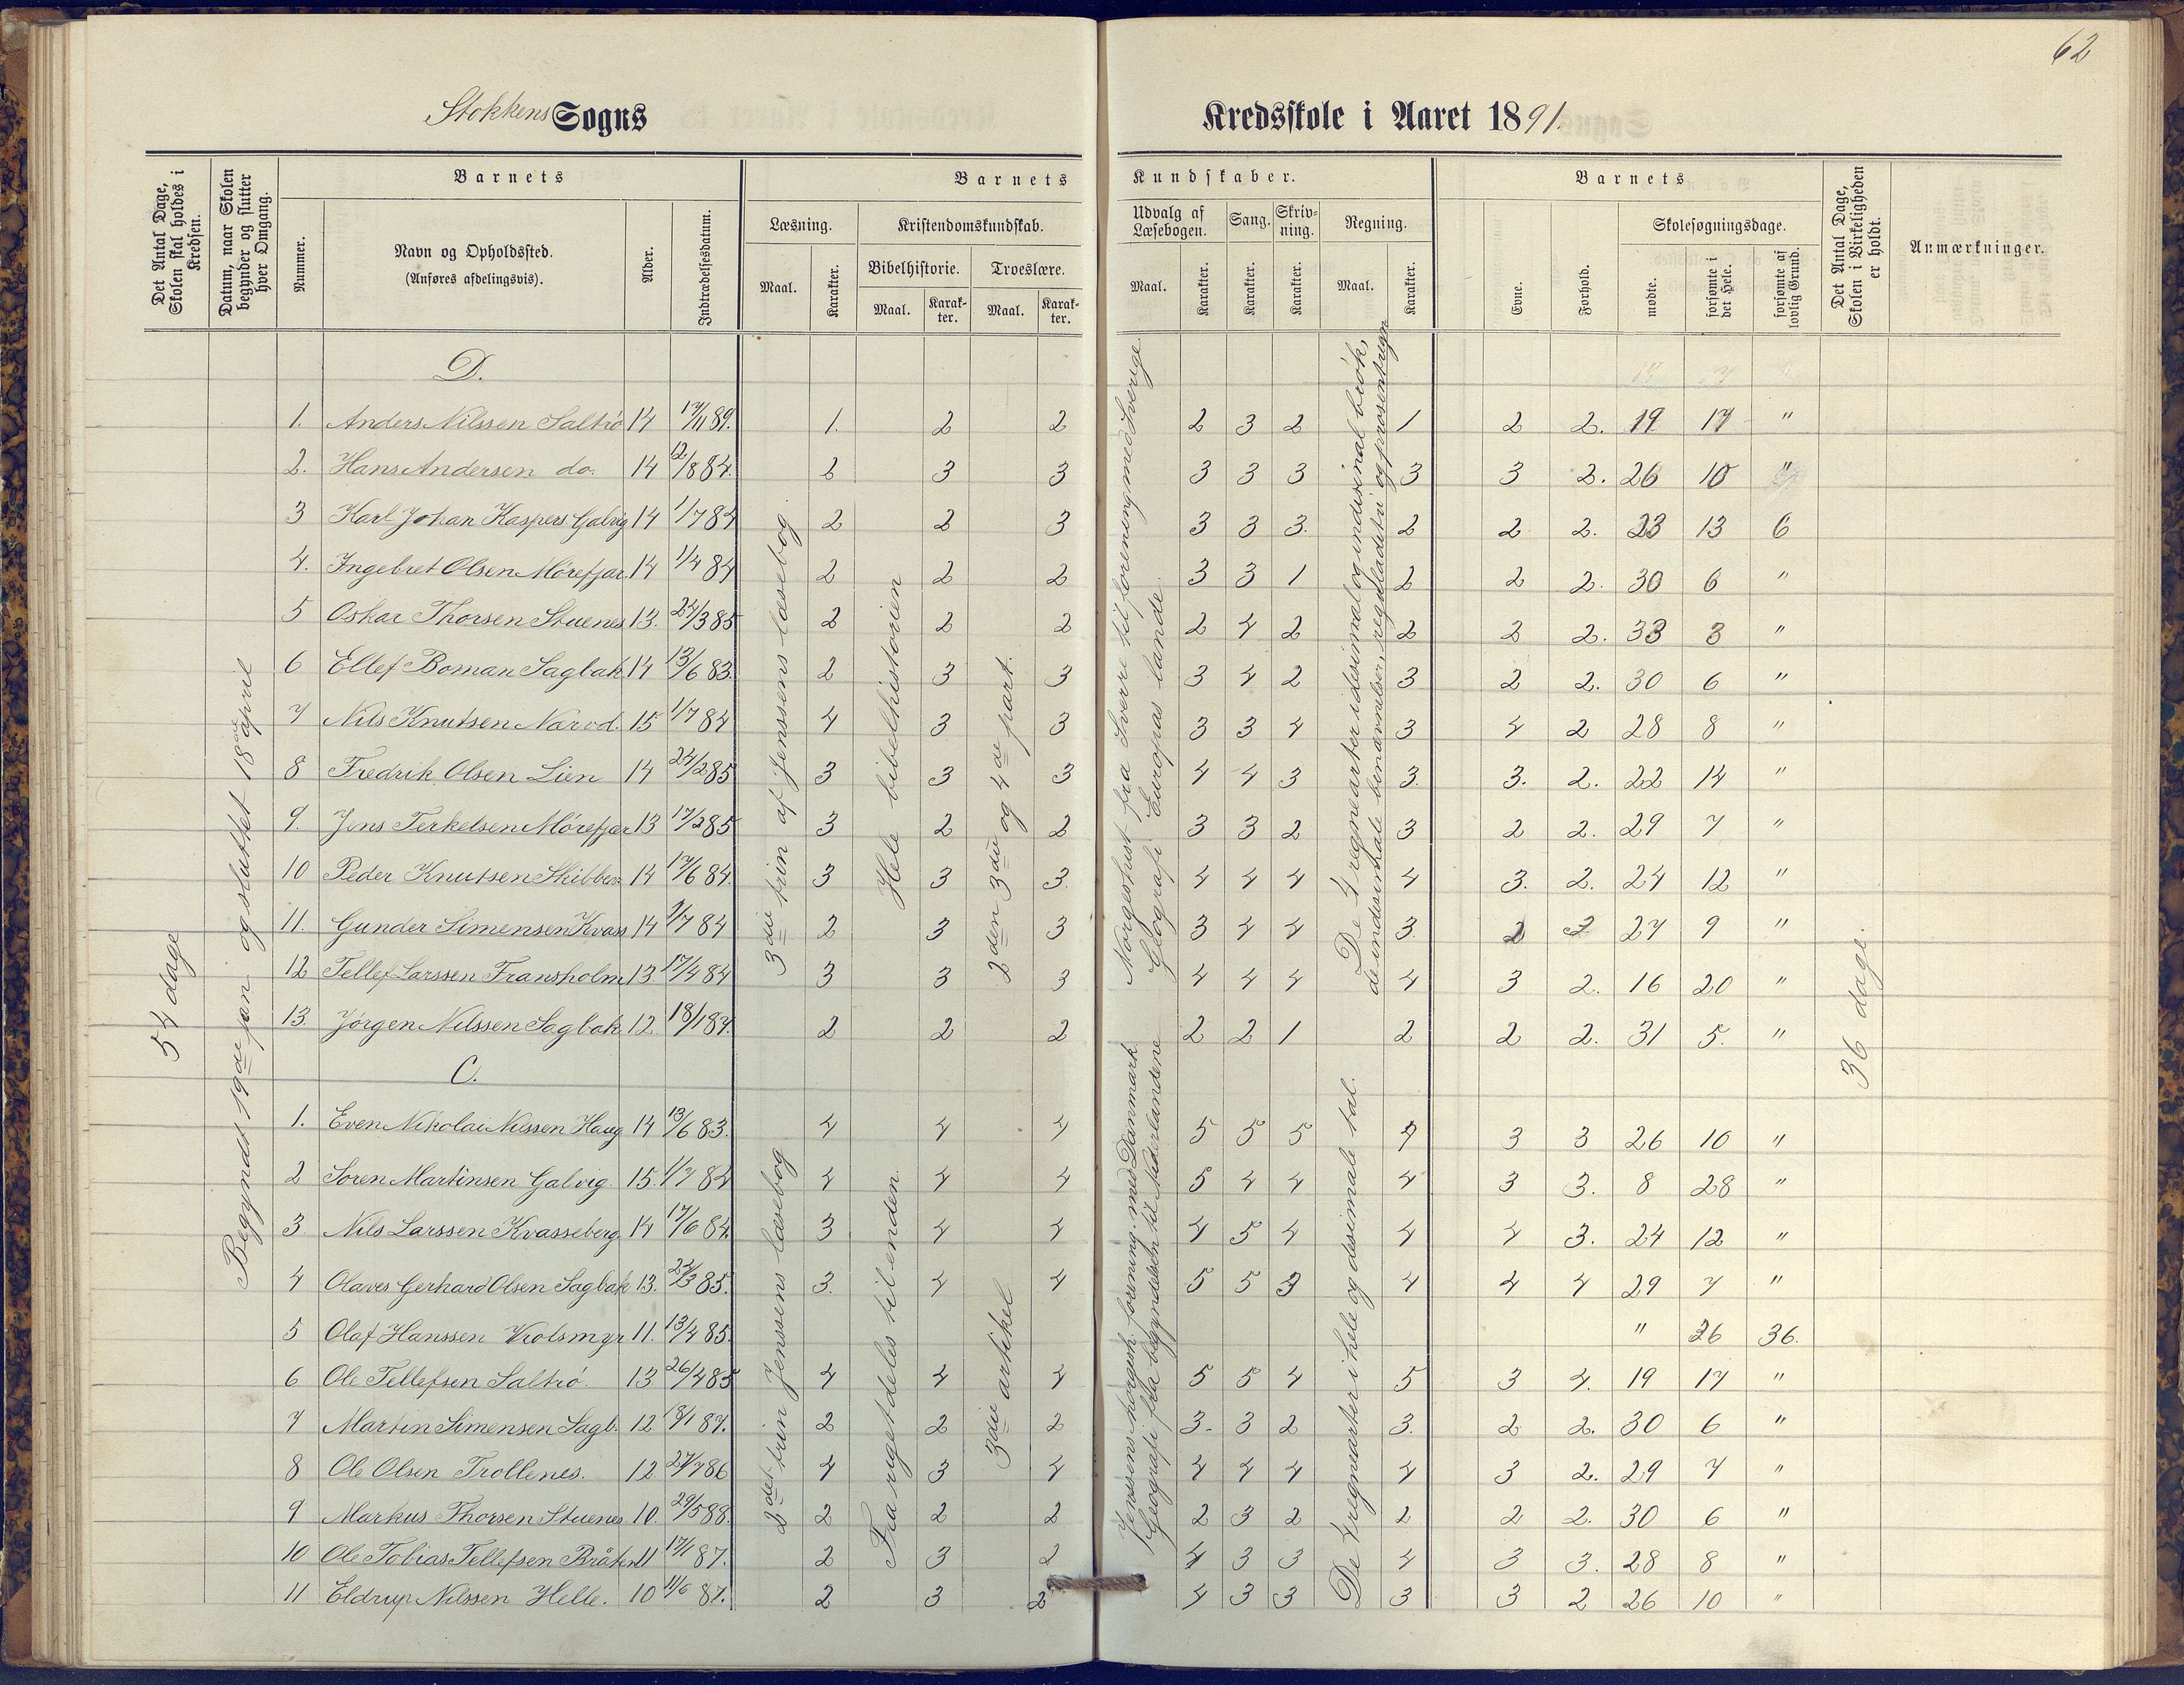 62
Stokkens Sogns Kredsskole i Aaret 1891.
Det Antal Dage, Skolen skal holdes i Kredsen.
Datum, naar Skolen begynder og slutter hver Omgang.
Barnets
Nummer.
Navn og Opholdssted.
(Anføres afdelingsvis).
Alder.
Indtrædelsesdatum.
Barnets Kundskaber.
Læsning.
Maal.
Karakter.
Kristendomskundskab.
Bibelhistorie.
Maal.
Karakter.
Troeslære.
Maal.
Karakter.
Udvalg af Læsebogen.
Maal.
Karakter.
Sang.
Karakter.
Skrivning.
Karakter.
Regning.
Maal.
Karakter.
Barnets
Evne.
Forhold.
Skolesøgningsdage.
mødte.
forsømte i det Hele.
forsømte af lovlig Grund.
Det Antal Dage, Skolen i Virkeligheden er holdt.
Anmærkninger.
54 dage
Begyndt 19de jan. og sluttet 18de april
D.
3die trin af Jenssens læsebog
Hele bibelhistorien
2den 3die og 4de part.
Norgeshist fra Sverre til forening med Sverige.
Geografi: Europas lande.
De 4 regnearter i desimal og indesimal brök,
de indesimale benævnelser, reguladetri og prosentregn
36 dage.
1. Anders Nilssen Saltrö 14 17/11 89. 1. 2 2 2 3 2 1 2 2. 19 17 "
2. Hans Andersen do. 14 12/8 84. 2 3 3 3 3 3 3 3 2. 26 10 "
3 Karl Johan Kaspers Galvig 14 1/7 84 2 2 3 3 3 3. 2 2 2. 23 13 6
4. Ingebret Olsen Mörefjær 14 1/4 84 2 2 2 3 3 1 2 2 2. 30 6 "
5 Oskar Thorsen Stuenes 13. 24/3 85 2 2 2 2 4 2 2 2 2. 33 3 "
6 Ellef Boman Sagbak 14 13/6 83. 2 3 3 3 4 2 3 2 2. 30 6 "
7 Nils Knutsen Nærød. 15 1/7 84 4 3 3 3 3 4 3 4 2 28 8 "
8 Fredrik Olsen Lien 14 24/2 85 3 3 3 4 4 3 3. 3. 2. 22 14 "
9. Jens Terkelsen Mörefjær 13 17/2 85 3 2 2 3 3 2 3 2 2. 29 7 "
10 Peder Knutsen Skibbevi 14 17/6 84. 3 3 3. 4 4 4 4 3. 2. 24 12 "
11. Gunder Simensen Kvass 14 1/7 84 2 3 3 3 4 4 3. 2 2 27 9 "
12 Tellef Larssen Fransholm 13 17/4 84 3 3 3 4 4 4 4 3 2. 16 20 "
13. Jörgen Nilssen Sagbak 12. 18/1 87. 2 2 2 2 2 1 2 2 2. 31 5. "
C.
2det trin Jenssens læsebog
Fra rigetdeles til enden.
3die artikel
Jenssens norgesh. forening. med Danmark
Geografi fra begyndelsen til Nederlandene
De 4 regnearter i hele og desimale tal.
1. Even Nikolai Nilssen Haug 14 13/6 83. 4 4 4 5 5 5 4 3 3 26 10 "
2 Sören Martinsen Galvig 15. 1/7 84 4 4 4 5 4 4 4 3 3. 8 28 "
3. Nils Larssen Kvasseberg 14 17/6 84. 3 4 4 4 5 4 4 4 3. 24 12 "
4 Olaves Gerhard Olsen Sagbak 13. 24/3 85. 3. 4 4 5 5 3 4 4 4 29 7 "
5 Olaf Hanssen Krolsmyr 11. 13/4 85. " 36 36.
6 Ole Tellefsen Saltrö 13 26/4 85 4 4 4 5 5 4 5 3 4. 19 17 "
7 Martin Simensen Sagb. 12. 18/1 87. 2 2 2 3. 3 2 3. 2 2. 30 6 "
8 Ole Olsen Trollenes. 12 27/7 86 4 3 4 4 4 4 4 3 2. 29 7 "
9 Markus Thorsen Stuenes 10. 29/5 88. 2 2 2 2 3 2 2 2 2. 30 6 "
10 Ole Tobias Tellefsen Bråten 11 17/1 87. 2 3 2 4 3 3 4 3 3. 28 8 "
11 Eldrup Nilssen Helle. 10 11/6 87. 2 3 2 4 3 3 3 3 2 26 10 "